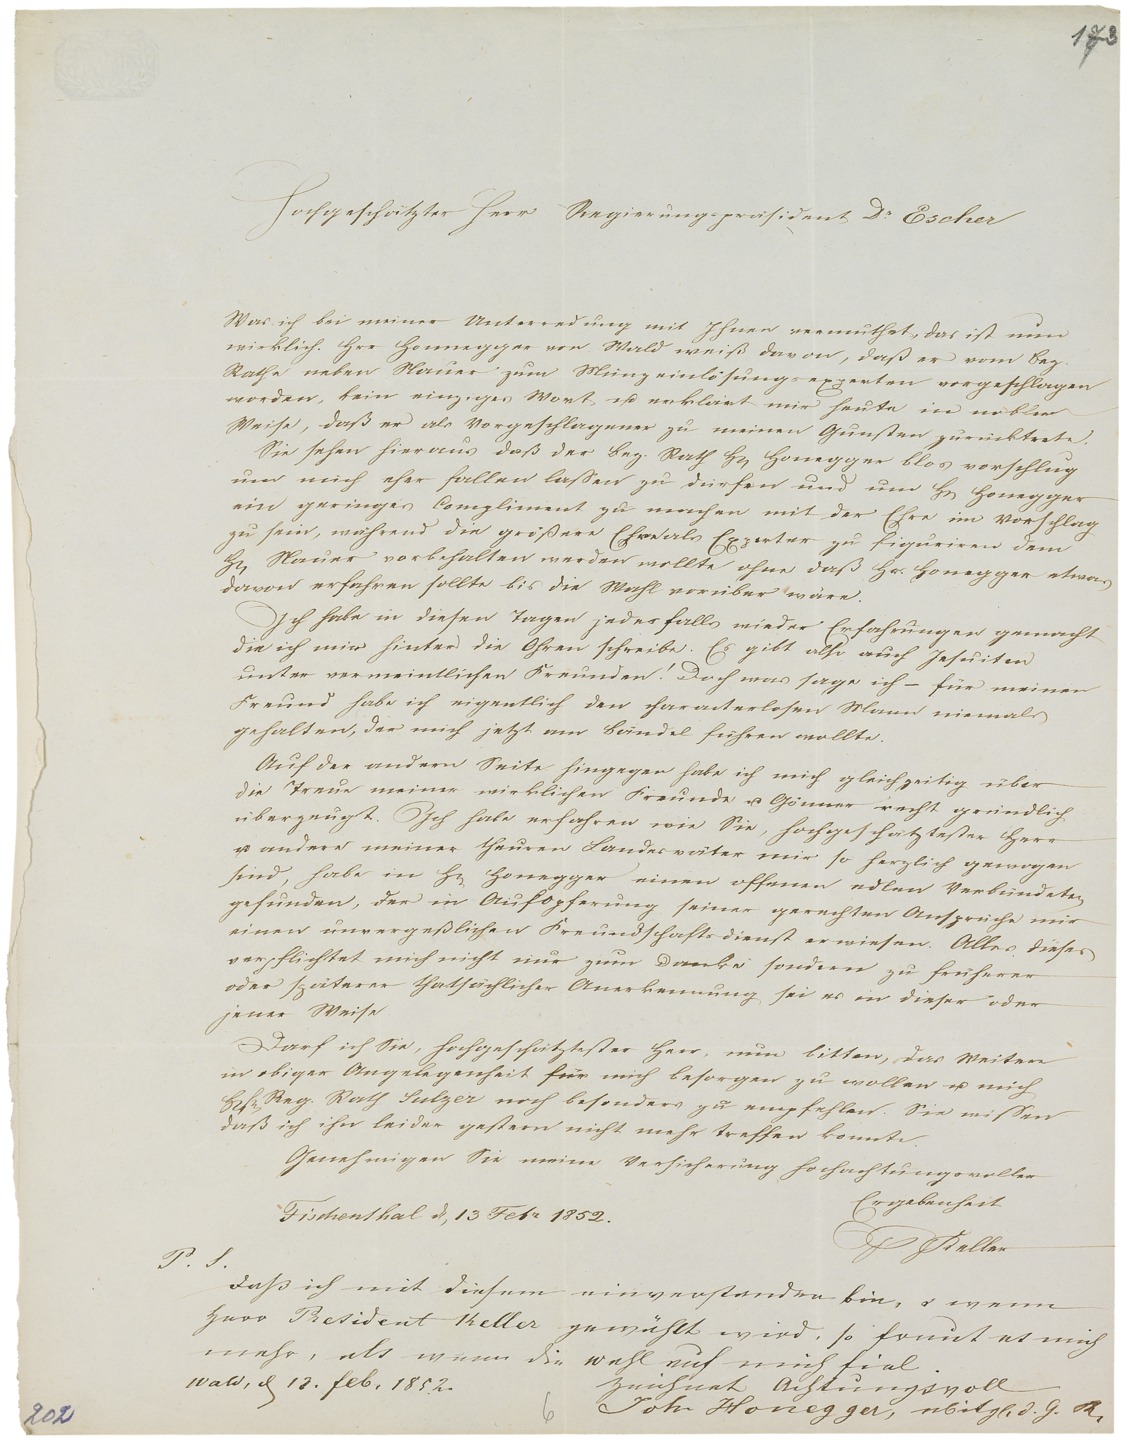 173
Hochgeschätzter Herr Regierungspräsident Dr Escher
Was ich bei meiner Unterredung mit Ihnen vermuthet, das ist nun
wirklich. Hrr Honnegger von Wald weiß davon, daß er vom Bez.
Rathe neben Nauer zum Münzeinlösungsexperten vorgeschlagen
worden, kein einziges Wort u erklärt mir heute in nobler
Weise, daß er als Vorgeschlagener zu meinen Gunsten zurücktrete.
Sie sehen hieraus daß der Bez. Rath Hr Honegger blos vorschlug
um mich eher fallen lassen zu dürfen und um Hr Honegger
ein geringes Compliment zu machen mit der Ehre im Vorschlag
zu sein, während die größere Ehre als Experter zu figuriren dem
Hr Nauer vorbehalten werden wollte ohne daß Hr. Honegger etwas
davon erfahren sollte bis die Wahl vorüber wäre.
Ich habe in diesen Tagen jedesfalls wieder Erfahrungen gemacht
die ich mir hinter die Ohren schreibe. Es gibt also auch Jesuiten
unter vermeintlichen Freunden! Doch was sage ich – für meinen
Freund habe ich eigentlich den characterlosen Mann niemals
gehalten, der mich jetzt am Bändel führen wollte.
Auf der andern Seite hingegen habe ich mich gleichzeitig über
die Treue meiner wirklichen Freunde u Gönner recht gründlich
überzeugt. Ich habe erfahren wie Sie, hochgeschätztester Herr
u andere meiner theuren Landesväter mir so herzlich gewogen
sind, habe in Hr Honegger einen offenen edlen Verbündeten
gefunden, der in Aufopferung seiner gerechten Ansprüche mir
einen unvergeßlichen Freundschaftsdienst erwiesen. Alles dieses
verpflichtet mich nicht nur zum Danke sondern zu früherer
oder späterer thatsächlicher Anerkennung sei es in dieser oder
jener Weise
Darf ich Sie, hochgeschätztester Herr, nun bitten, das Weitere
in obiger Angelegenheit für mich besorgen zu wollen u mich
Reg. Rath Sulzer noch besonders zu empfehlen. Sie wissen
daß ich ihn leider gestern nicht mehr treffen konnte.
Genehmigen Sie meine Versicherung hochachtungsvoller
Ergebenheit
Fischenthal d, 13 Febr 1852.
Keller
P. S.
Daß ich mit diesem einverstanden bin, & wenn
Herr President Keller gewählt wird, so freut es mich
mehr, als wenn die wahl auf mich fiel.
Wald, d 13. feb. 1852.
zeichnet Achtungsvoll
Joh. Honegger, Mitgl. d. G. R.
202